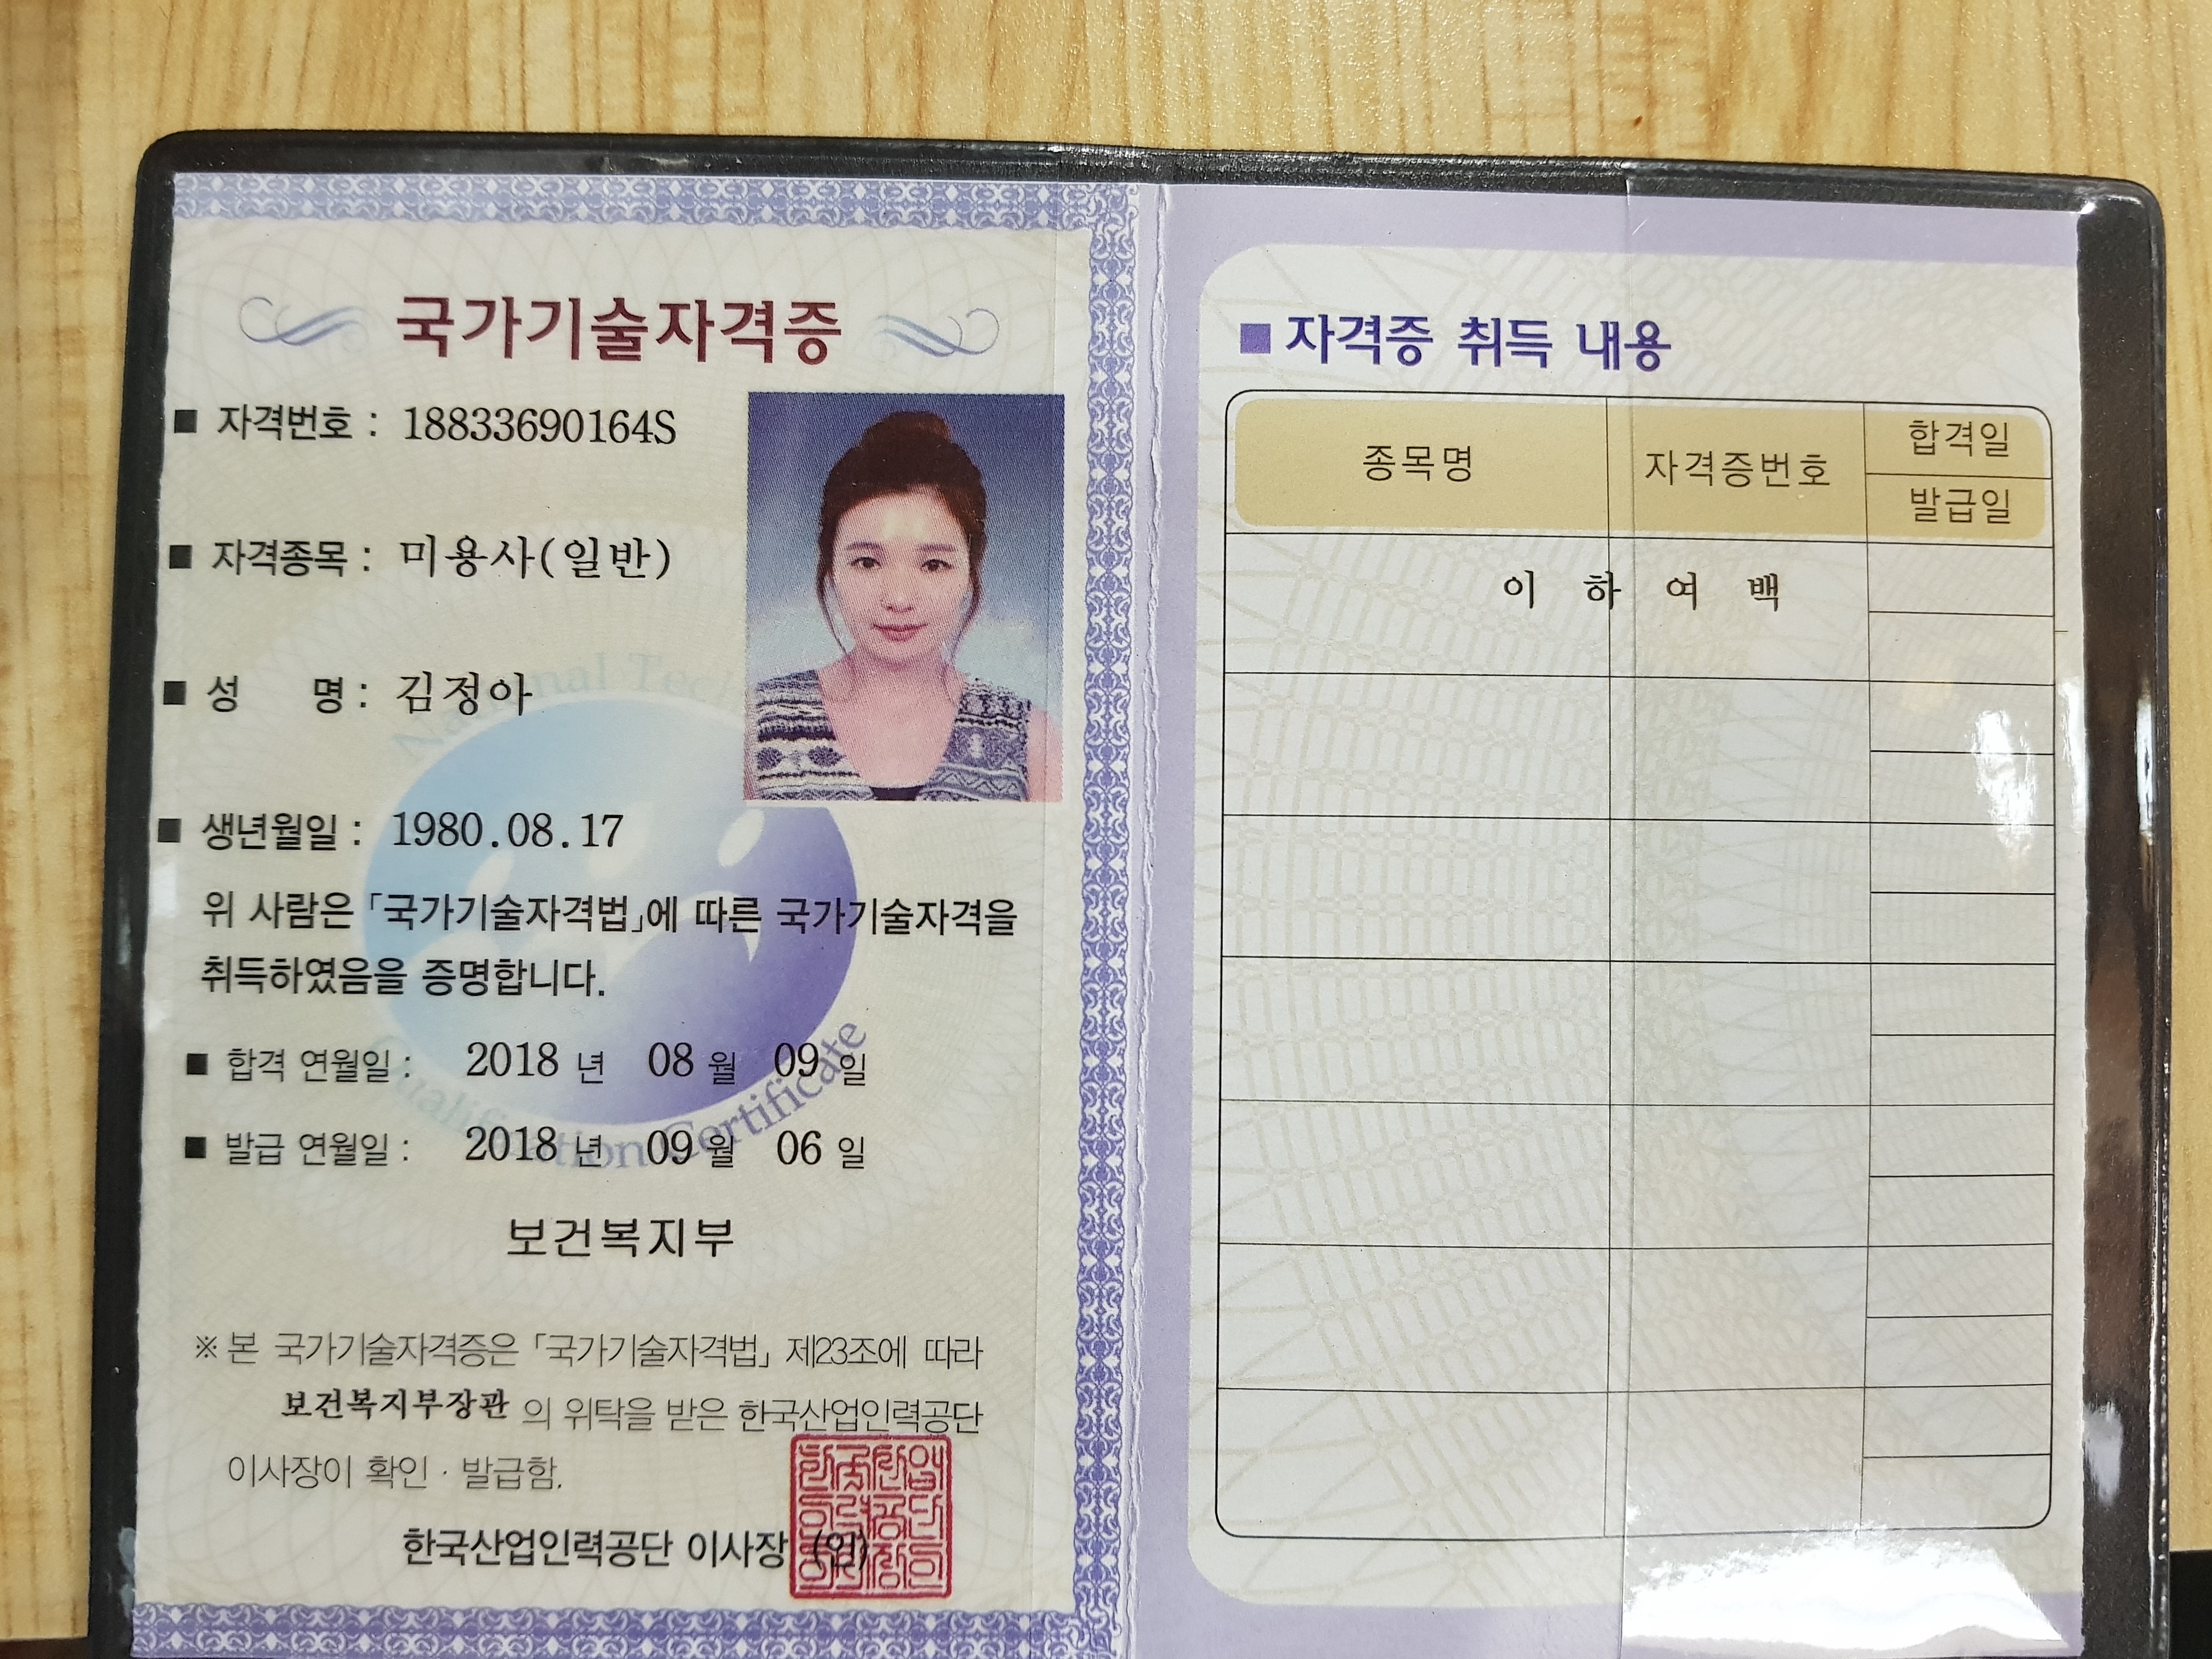 국가기술자격증
■ 자격번호 : 18833690164S
■ 자격종목 : 미용사(일반)
■ 성 명 : 김정아
■ 생년월일 : 1980.08.17
위 사람은 「국가기술자격법」에 따른 국가기술자격을
취득하였음을 증명합니다.
■ 합격 연월일 : 2018 년 08 월 09 일
■ 발급 연월일 : 2018 년 09 월 06 일
보건복지부
※ 본 국가기술자격증은 「국가기술자격법」 제23조에 따라
보건복지부장관 의 위탁을 받은 한국산업인력공단
이사장이 확인 · 발급함.
한국산업인력공단 이사장 (인)
Qualification Certificate
■ 자격증 취득 내용
종목명 자격증번호 합격일
발급일
이 하 여 백